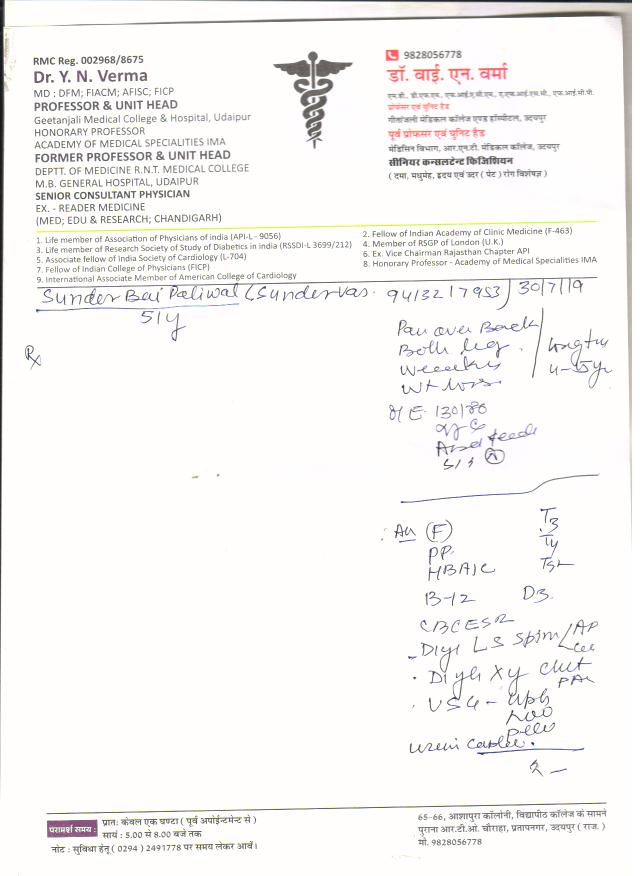 RMC Reg. 002968/8675
Dr. Y. N. Verma
MD : DFM; FIACM; AFISC; FICP
PROFESSOR & UNIT HEAD
Geetanjali Medical College & Hospital, Udaipur
HONORARY PROFESSOR
ACADEMY OF MEDICAL SPECIALITIES IMA
FORMER PROFESSOR & UNIT HEAD
DEPTT. OF MEDICINE R.N.T. MEDICAL COLLEGE
M.B. GENERAL HOSPITAL, UDAIPUR
SENIOR CONSULTANT PHYSICIAN
EX. - READER MEDICINE
(MED; EDU & RESEARCH; CHANDIGARH)
9828056778
डॉ. वाई. एन. वर्मा
एम.डी., डी.एफ.एम., एफ.आई.ए.सी.एम., ए.एफ.आई.एस.सी., एफ.आई.सी.पी.
प्रोफेसर एवं यूनिट हैड
गीतांजली मेडिकल कॉलेज एण्ड हॉस्पीटल, उदयपुर
पूर्व प्रोफसर एवं यूनिट हैड
मेडिसिन विभाग, आर.एन.टी. मेडिकल कॉलेज, उदयपुर
सीनियर कन्सलटेन्ट फिजिशियन
( दमा, मधुमेह, हृदय एवं उदर ( पेट ) रोग विशेषज्ञ )
1. Life member of Association of Physicians of india (API-L - 9056)
2. Fellow of Indian Academy of Clinic Medicine (F-463)
3. Life member of Research Society of Study of Diabetics in india (RSSDI-L 3699/212)
4. Member of RSGP of London (U.K.)
5. Associate fellow of India Society of Cardiology (L-704)
6. Ex. Vice Chairman Rajasthan Chapter API
7. Fellow of Indian College of Physicians (FICP)
8. Honorary Professor - Academy of Medical Specialities IMA
9. International Associate Member of American College of Cardiology
Sunder Bai Paliwal (Sundervas. 9413217953) 30/7/19
51y
Rx
Pan over Back
Both leg.
Wt loss
4-5yr
O/E 130/80
S1S
(F)
PP.
HBA1C
B-12
D3
T3
T4
CBC ESR
Digi LS Spin/AP
Xy Chet
USG -
प्रातः केवल एक घण्टा ( पूर्व अपोईन्टमेन्ट से )
परामर्श समय :
सायं : 5.00 से 8.00 बजे तक
नोट : सुविधा हेतू ( 0294 ) 2491778 पर समय लेकर आवें।
65-66, आशापुरा कॉलोनी, विद्यापीठ कॉलेज के सामने
पुराना आर.टी.ओ. चौराहा, प्रतापनगर, उदयपुर ( राज. )
मो. 9828056778